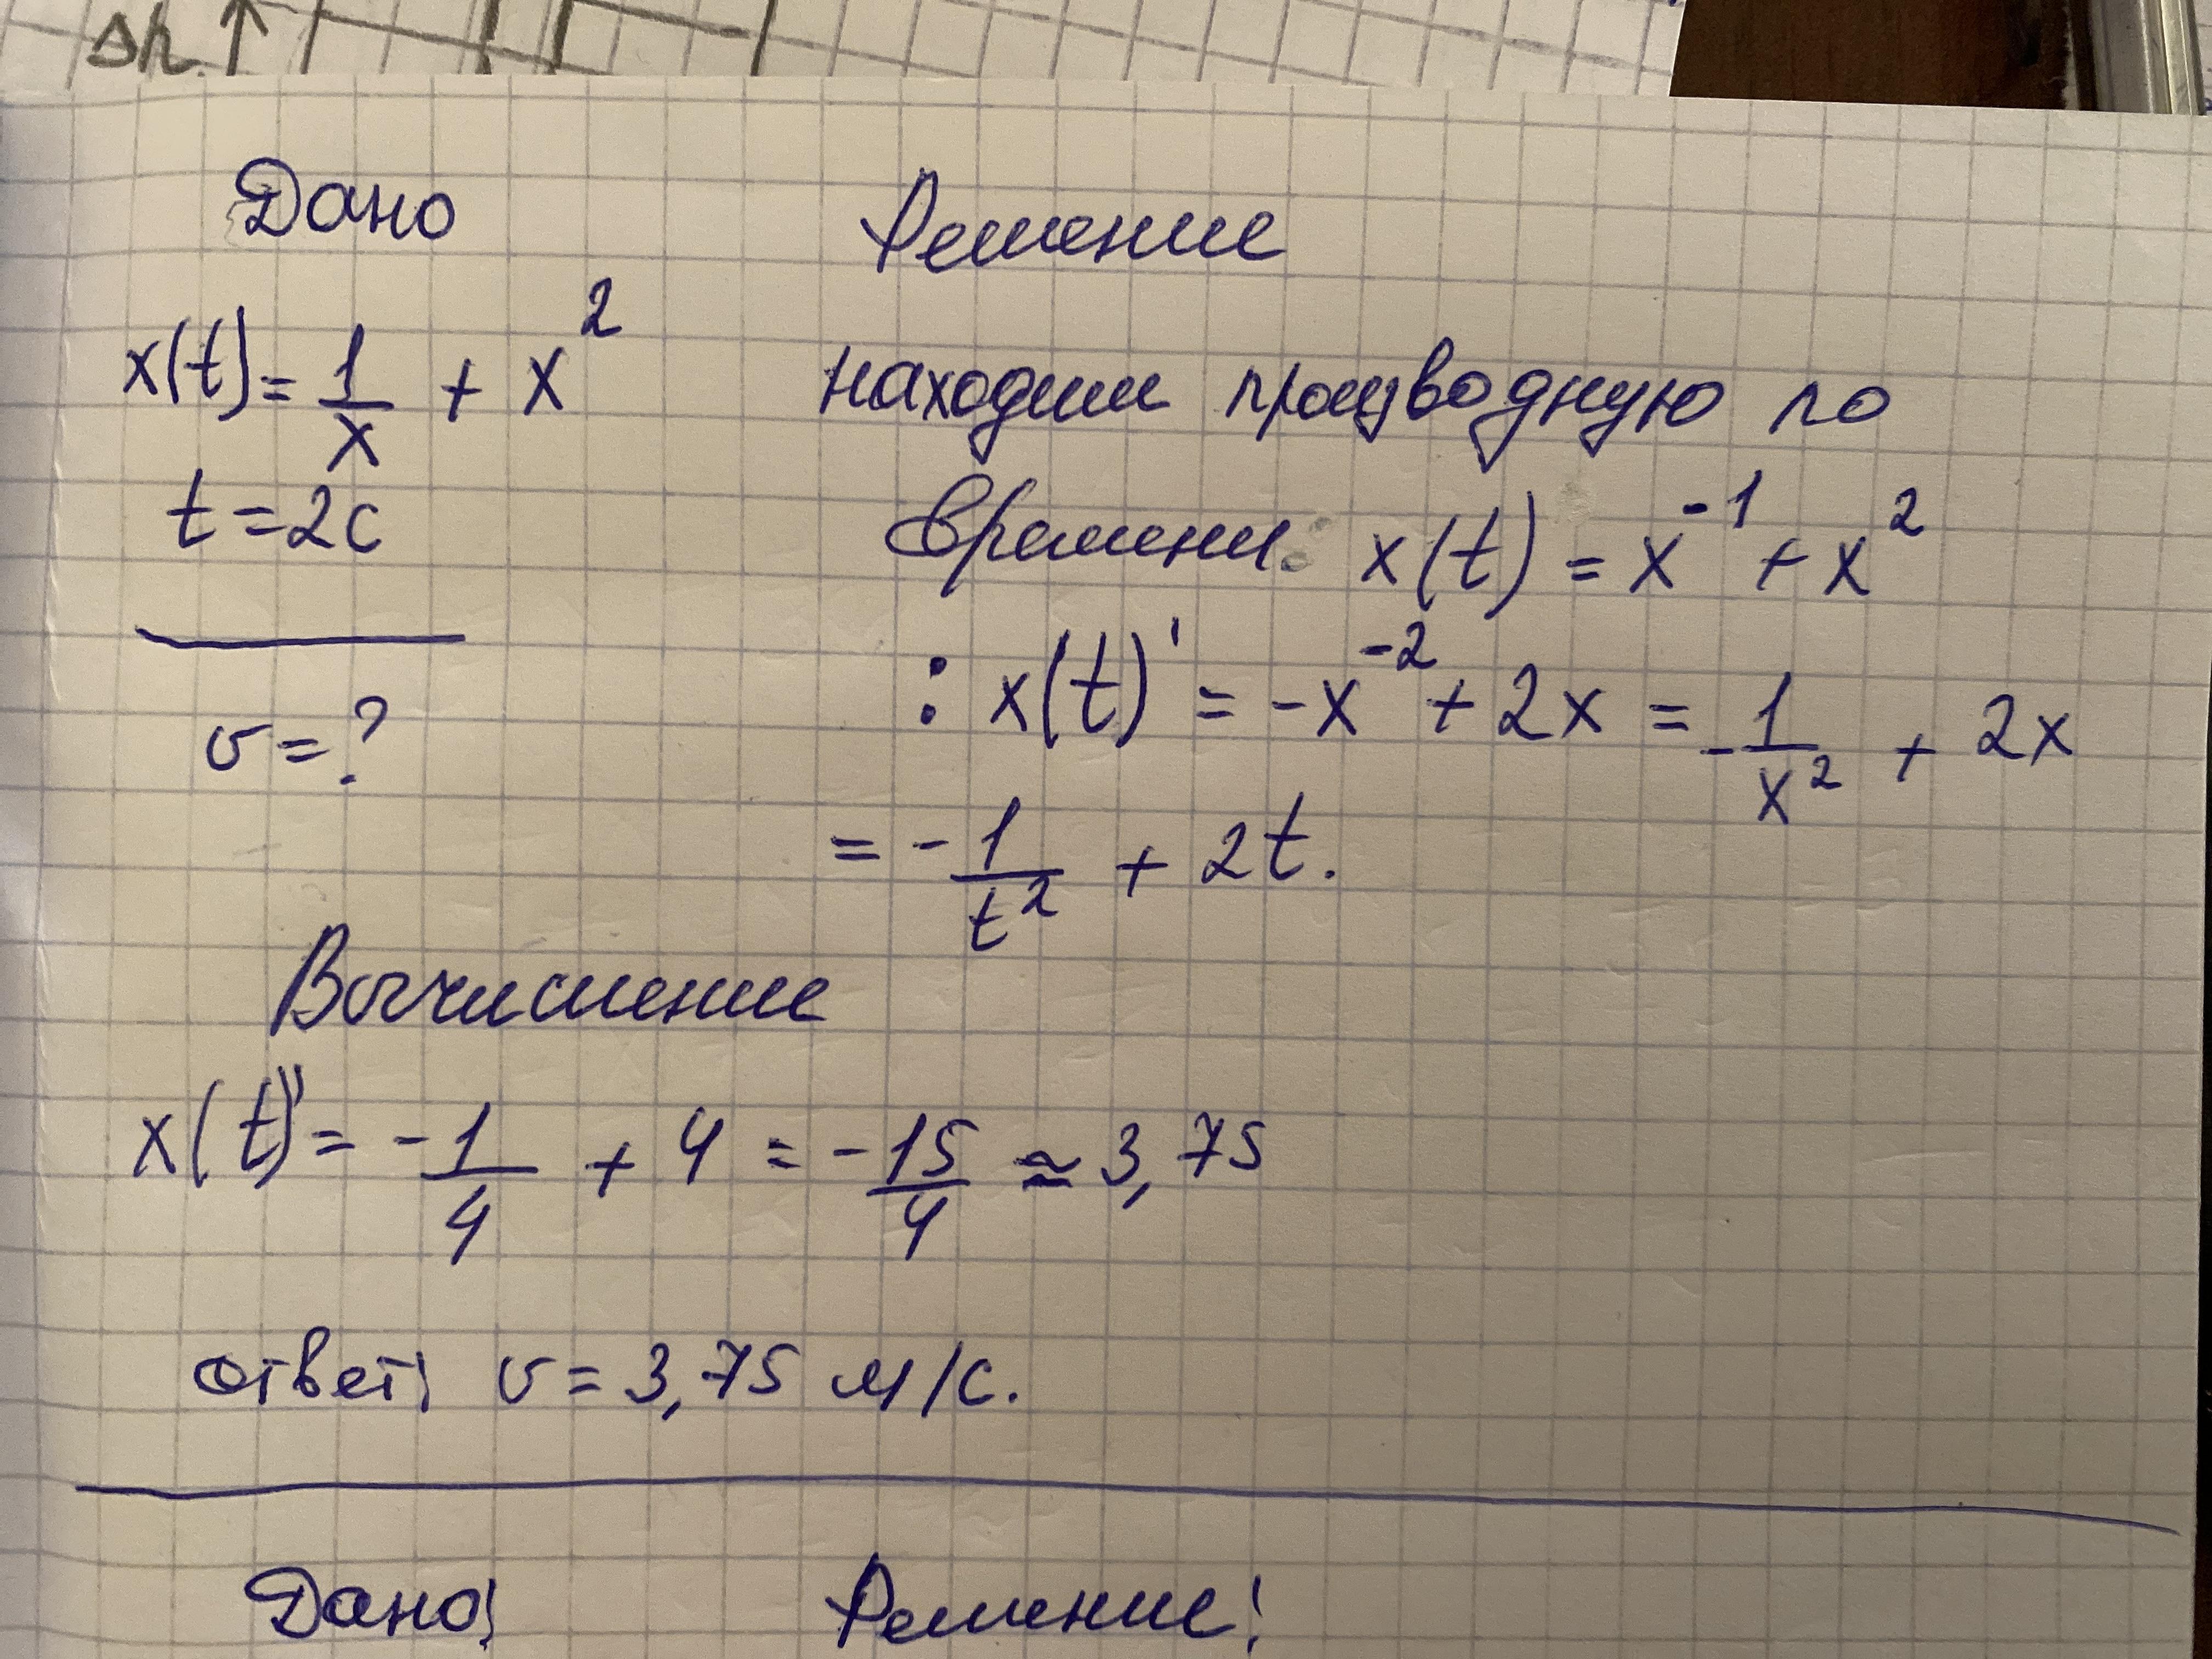 Δh ↑
Дано Решение
x(t) = 1/x + x² находим производную по
t = 2с времени: x(t) = x⁻¹ + x²
υ = ? : x(t)' = -x⁻² + 2x = -1/x² + 2x
= -1/t² + 2t.
Вычисление
x(t)' = -1/4 + 4 = -15/4 ≈ 3,75
ответ: υ = 3,75 м/с.
Дано: Решение: